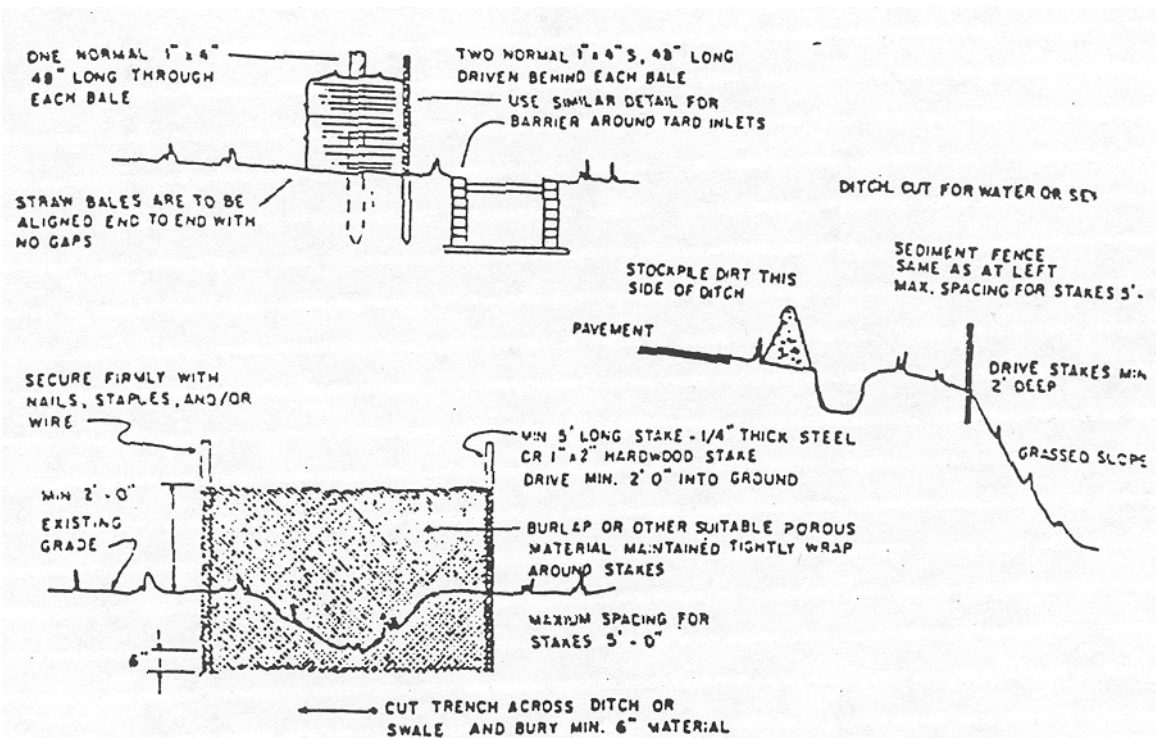 ONE NORMAL 1" x 4"
48" LONG THROUGH
EACH BALE
TWO NORMAL 1" x 4" S, 48" LONG
DRIVEN BEHIND EACH BALE
USE SIMILAR DETAIL FOR
BARRIER AROUND YARD INLETS
STRAW BALES ARE TO BE
ALIGNED END TO END WITH
NO GAPS
DITCH CUT FOR WATER OR
SEDIMENT FENCE
SAME AS AT LEFT
MAX. SPACING FOR STAKES 5'-
STOCKPILE DIRT THIS
SIDE OF DITCH
PAVEMENT
DRIVE STAKES MIN
2' DEEP
GRASSED SLOPE
SECURE FIRMLY WITH
NAILS, STAPLES, AND/OR
WIRE
MIN 5' LONG STAKE - 1/4" THICK STEEL
OR 1" x 2" HARDWOOD STAKE
DRIVE MIN. 2' 0" INTO GROUND
MIN 2' - 0"
EXISTING
GRADE
BURLAP OR OTHER SUITABLE POROUS
MATERIAL MAINTAINED TIGHTLY WRAP
AROUND STAKES
MAXIUM SPACING FOR
STAKES 5' - 0"
6"
CUT TRENCH ACROSS DITCH OR
SWALE AND BURY MIN. 6" MATERIAL